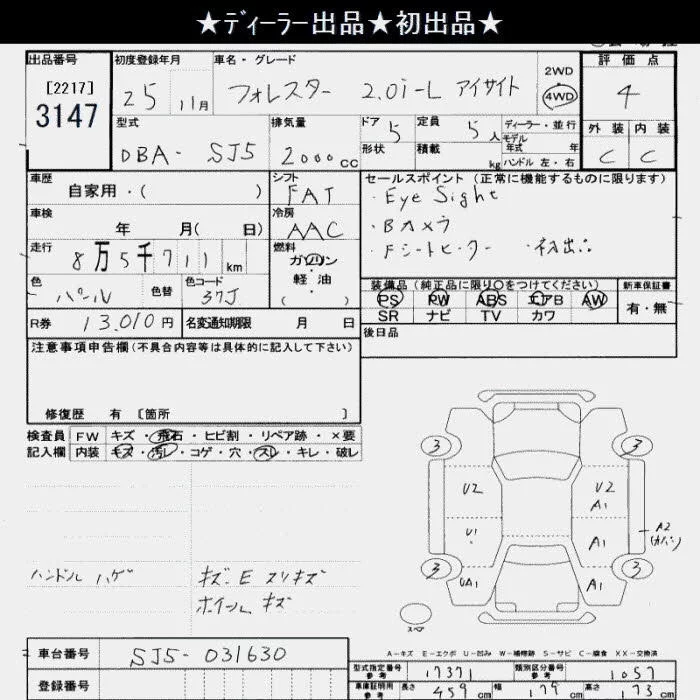 ★ディーラー出品★初出品★
出品番号
[2217]
3147
初度登録年月
25 11月
車名・グレード
フォレスター 2.0i-L アイサイト
2WD
4WD
評価点
4
外装 内装
C C
型式
DBA- SJ5
排気量
2000cc
ドア 5
形状
定員 5人
積載 kg
ディーラー・並行
モデル
年式 年
ハンドル 左・右
車歴
自家用・( )
シフト
FAT
車検
年 月( 日)
冷房
AAC
走行
8万5千711km
燃料
ガソリン
軽油
( )
色
パール
色替
色コード
37J
R券 13,010円
名変通知期限 月 日
セールスポイント(正常に機能するものに限ります)
・Eye Sight
・Bカメラ
・Fシートヒーター ・初出品
装備品(純正品に限り○をつけてください)
PS PW ABS エアB AW
SR ナビ TV カワ
新車保証書
有・無
後日品
注意事項申告欄(不具合内容等は具体的に記入して下さい)
修復歴 有 [箇所 ]
検査員
記入欄
FW キズ・飛石・ヒビ割・リペア跡・×要
内装 キズ・汚レ・コゲ・穴・スレ・キレ・破レ
ハンドル ハゲ
キズ・E スリキズ
ホイール キズ
3 3
U2 U2
A1
U1 A1
A2
(カバー)
3 3
UA1 A1
スペア
A-キズ E-エクボ U-凹み W-補修跡 S-サビ C-腐食 XX-交換済
車台番号
SJ5-031630
登録番号
型式指定番号
参考
17371
類別区分番号
参考
1057
車庫証明用
参考
長さ 459cm
幅 179cm
高さ 173cm